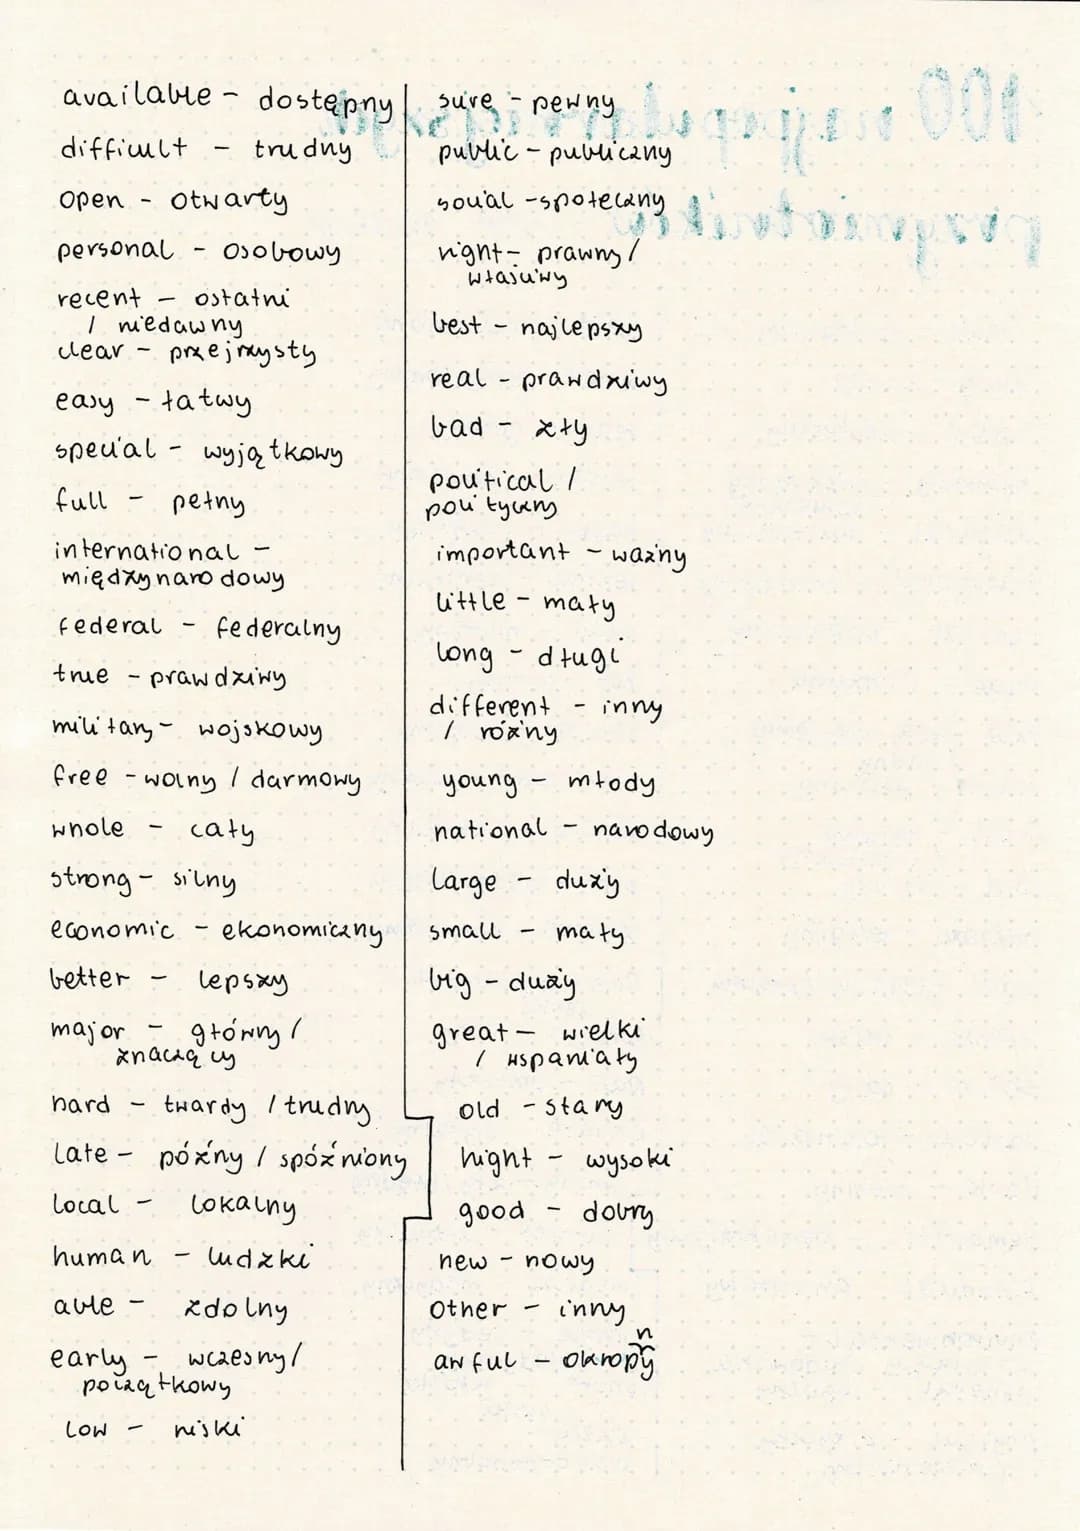 available - dostępny
difficult - trudny
open - otwarty
personal - osobowy
recent - ostatni
/ niedawny
clear - przejrzysty
easy - łatwy
special - wyjątkowy
full - pełny
international -
międzynarodowy
federal - federalny
true - prawdziwy
military - wojskowy
free - wolny / darmowy
whole - cały
strong - silny
economic - ekonomiczny
better - lepszy
major - główny /
znaczący
hard - twardy / trudny
late - późny / spóźniony
local - lokalny
human - ludzki
able - zdolny
early - wczesny /
początkowy
low - niski
sure - pewny
public - publiczny
social - społeczny
right - prawny /
właściwy
best - najlepszy
real - prawdziwy
bad - zły
political /
polityczny
important - ważny
little - mały
long - długi
different - inny
/ różny
young - młody
national - narodowy
large - duży
small - mały
big - duży
great - wielki
/ wspaniały
old - stary
hight - wysoki
good - dobry
new - nowy
other - inny
awful - okropny
100 najpopularniejszych
przymiotników